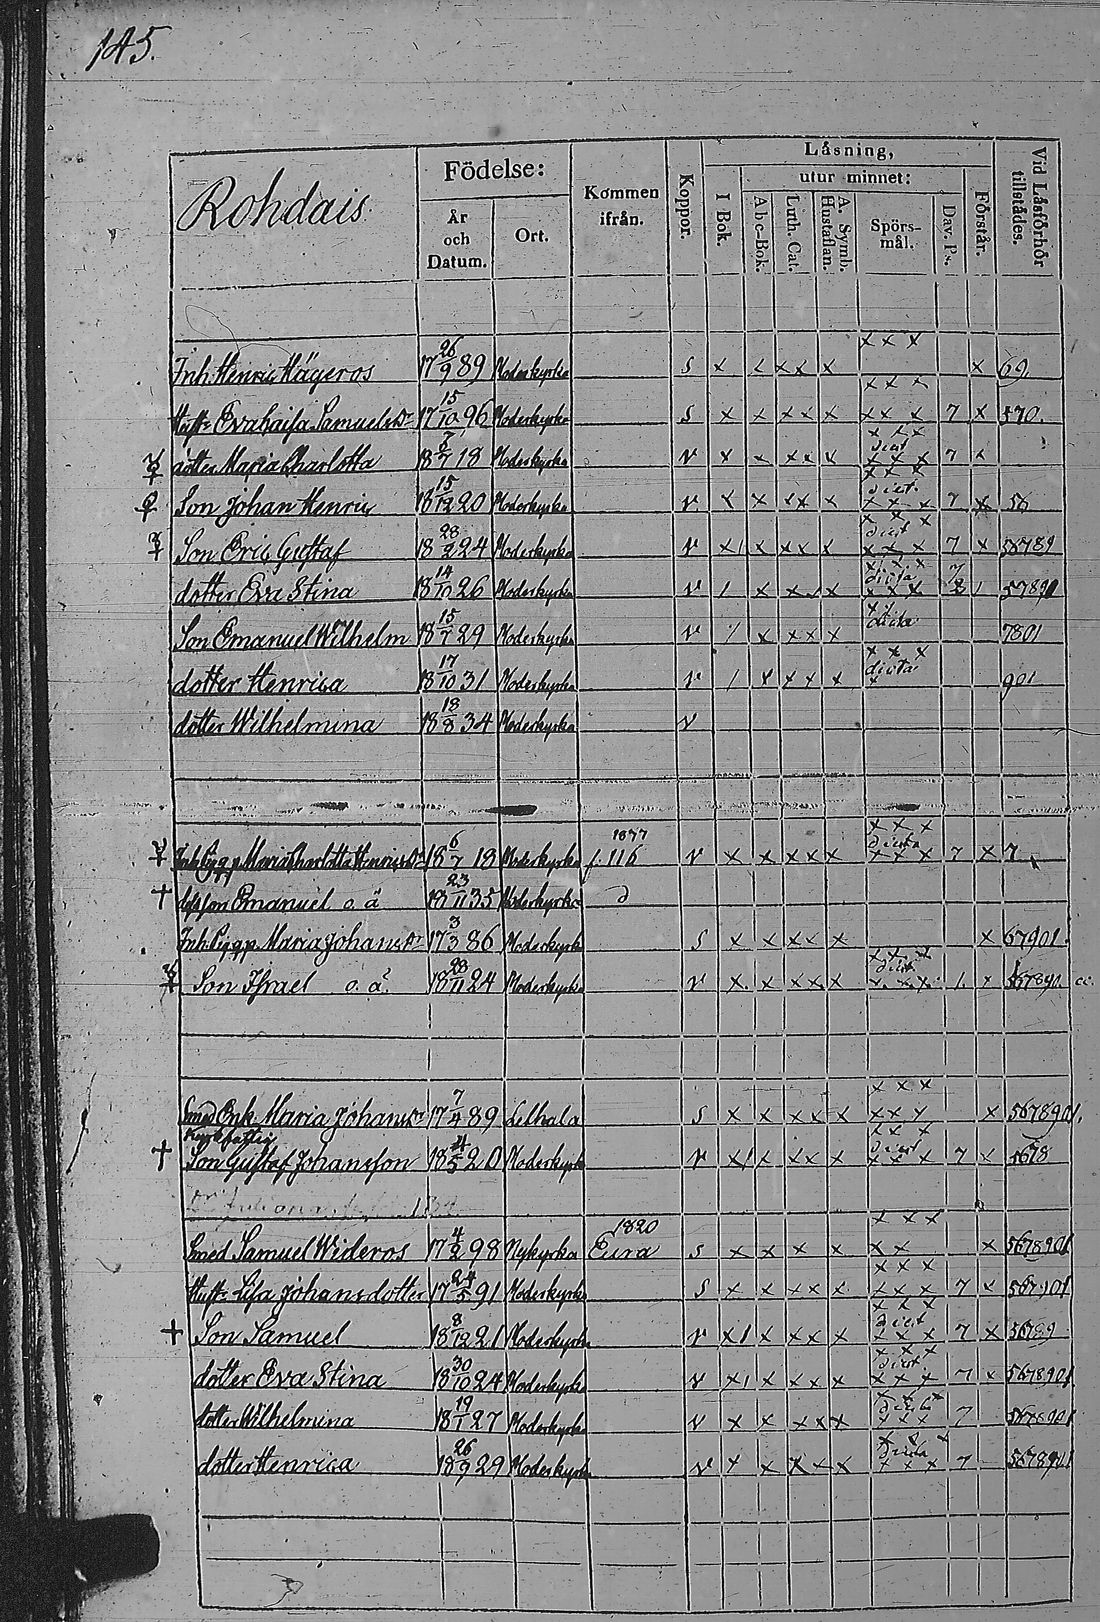 145.
Rohdais
Födelse:
År och Datum.
Ort.
Kommen ifrån.
Koppor.
Läsning,
I Bok.
utur minnet:
A b c-Bok.
Luth. Cat.
A. Symb. Hustaflan.
Spörs-mål.
Dav. Ps.
Förstår.
Vid Läsförhör tillstädes.
x x x
Inh. Henric Hägeros 17 26/9 89 Moderkyrka S x x x x x x 69
x x x
Hust. Eva Caisa Samuelsdr 17 15/10 96 Moderkyrka S x x x x x x x x 7 x 570.
x x x dict
dotter Maria Charlotta 18 7 18 Moderkyrka V x x x x x x x x 7 x
x x x dict
Son Johan Henric 18 15/12 20 Moderkyrka V x x x x x x x x 7 x
x x x dict
Son Eric Gustaf 18 28/2 24 Moderkyrka V x/ x x x x x x x 7 x 56789
x x x dicta
dotter Eva Stina 18 14/10 26 Moderkyrka V / x x x x x x x
dicta
Son Emanuel Wilhelm 18 15/7 29 Moderkyrka V / x x x x 7801
x x x dicta
dotter Henrica 18 17/10 31 Moderkyrka V / x x x x x 901
dotter Wilhelmina 18 18/8 34 Moderkyrka V
1837 x x x dicta
Inh. Pigg. Maria Charlotta Henricsdr 18 6/7 18 Moderkyrka f. 116 V x x x x x x x x 7 x 7
† dess son Emanuel o. ä 18 23/11 35 Moderkyrka d
Inh. Pigg. Maria Johansdr 17 3/3 86 Moderkyrk S x x x x x x 67901
x x x dict
Son Israel o. ä. 18 28/11 24 Moderkyrka V x x x x x x x x 1. x 567890.
x x x
Smed Enk. Maria Johansdr 17 7/4 89 Lethala S x x x x x x x x x 5678901.
x x x dict
† Son Gustaf Johansson 18 4/5 20 Moderkyrk V x/ x x x x x x x 7 x 5678
1820 x x x
Smed Samuel Wideros 17 4/2 98 Nykyrka Eura S x x x x x x x 5678901
x x x
Hust. Lisa Johansdotter 17 24/5 91 Moderkyrka S x x x x x x x x 7 x 567901
x x x dict
† Son Samuel 18 8/12 21 Moderkyrka V x/ x x x x x x x 7 x 56789
x x x dict
dotter Eva Stina 18 30/10 24 Moderkyrka V x/ x x x x x x x 7 x 5678901
x x x dicta
dotter Wilhelmina 18 19/1 27 Moderkyrka V x x x x x x x x 7 5678901
x x x dicta
dotter Henrica 18 26/9 29 Moderkyrka V x x x x x x x x 7 5678901